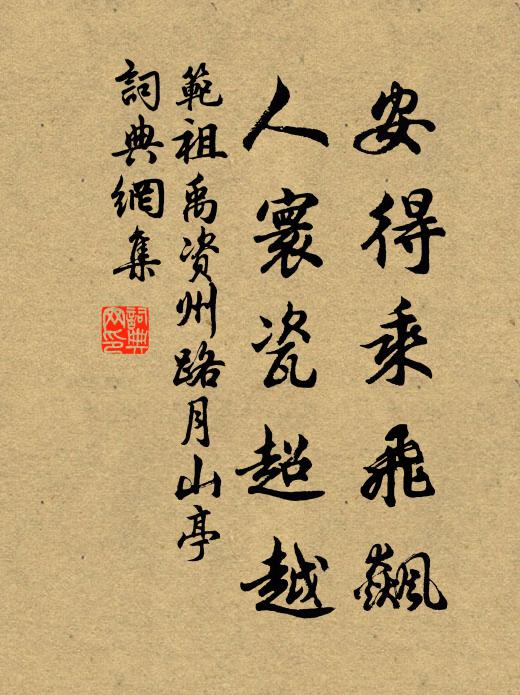 安得乘飛飆
人寰恣超越
範祖禹資州路月山亭
詞典網集
詞典網印